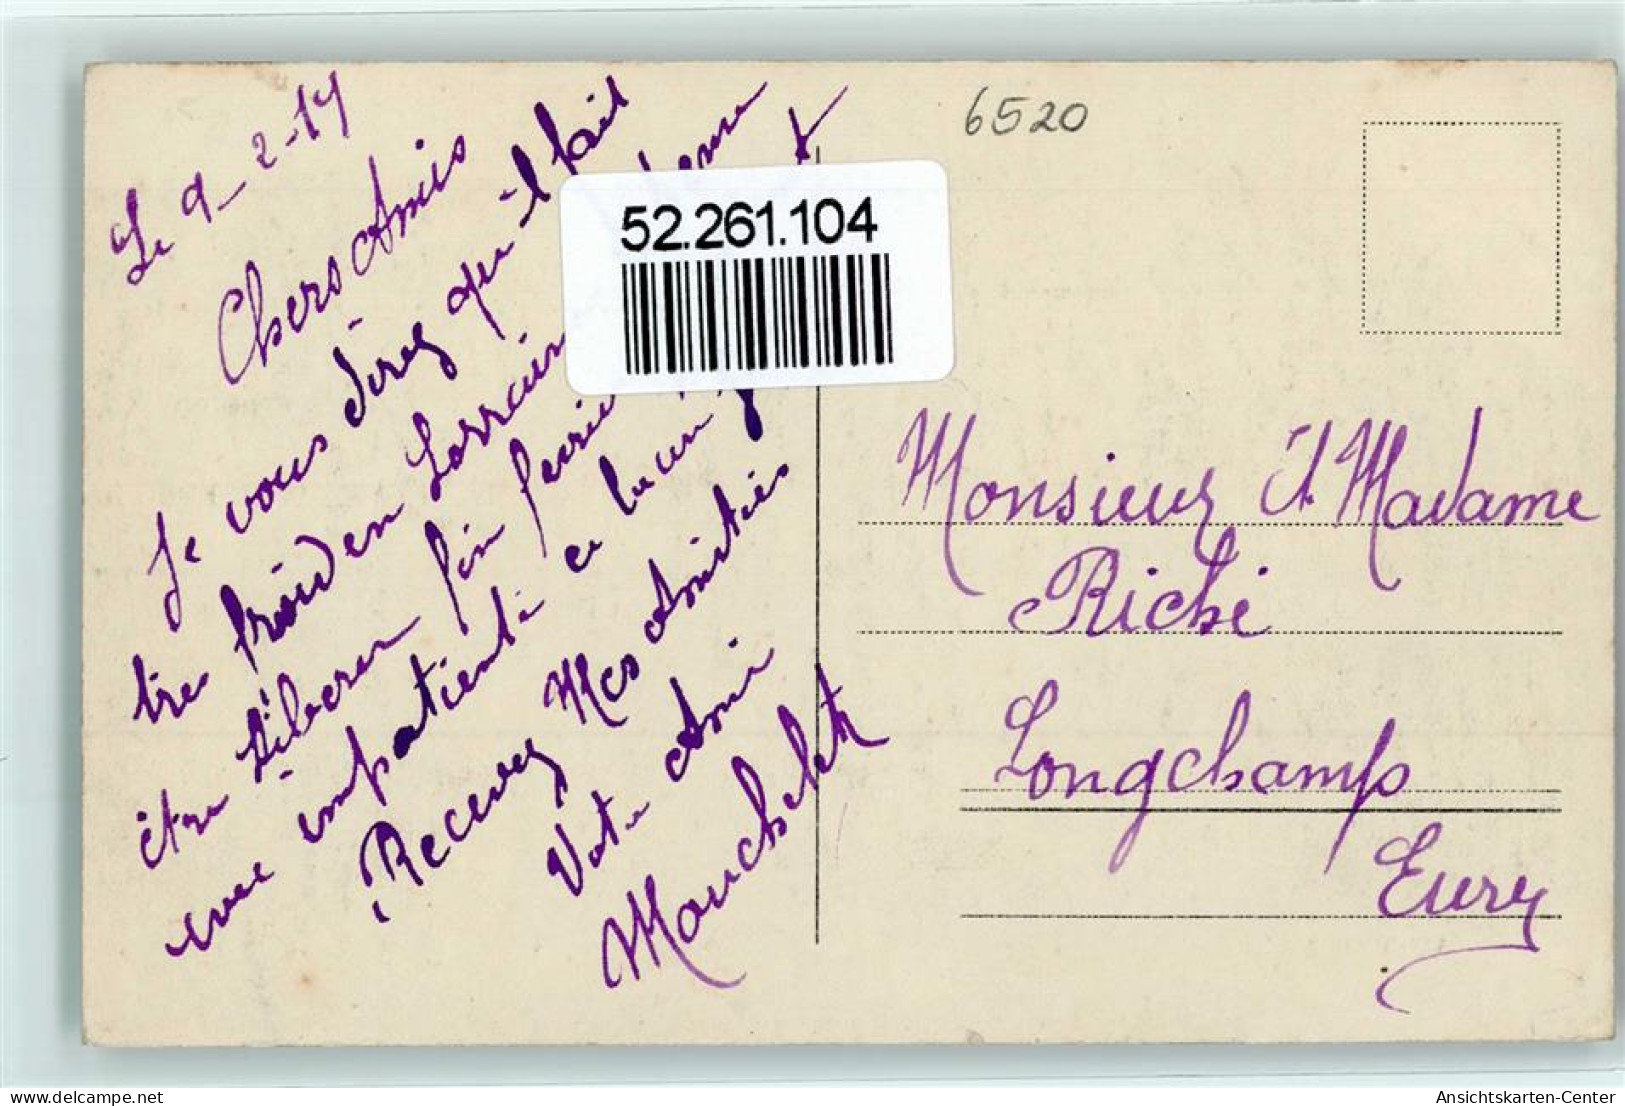 Le 9-2-19
Chers Amis
Je vous direz qu'il fait
tres froid en Lorraine
être Liberer fin
avec impatiente ce
Recevez Mes Amitiés
Votre Ami
Mouchelet
6520
52.261.104
Monsieur Et Madame
Riché
Longchamp
Eure
delcampe.net
Ansichtskarten-Center